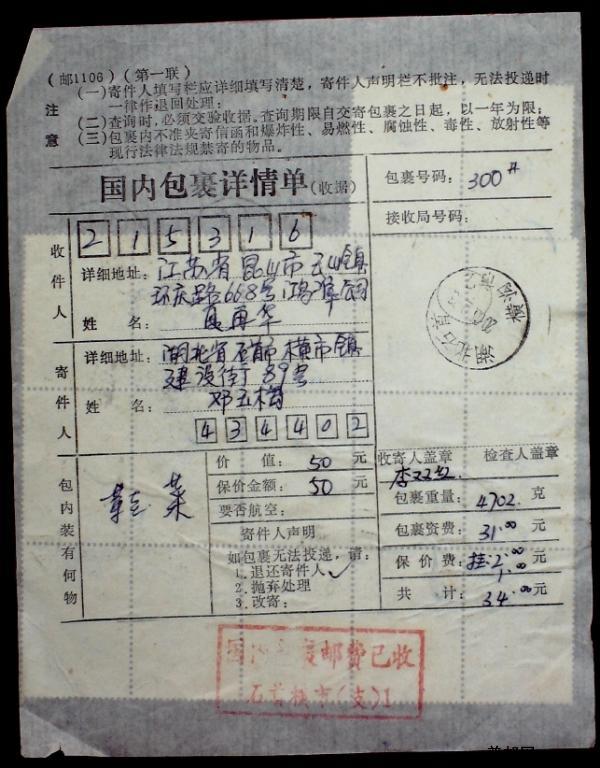 (邮1106)(第一联)
注意
(一)寄件人填写栏应详细填写清楚，寄件人声明栏不批注，无法投递时
一律作退回处理；
(二)查询时，必须交验收据。查询期限自交寄包裹之日起，以一年为限；
(三)包裹内不准夹寄信函和爆炸性、易燃性、腐蚀性、毒性、放射性等
现行法律法规禁寄的物品。
国内包裹详情单(收据)
包裹号码：300#
接收局号码：
收件人
215316
详细地址：江苏省昆山市玉山镇
环庆路668号
姓 名：夏再华
寄件人
详细地址：湖北省石首市横市镇
建设街89号
姓 名：邓玉梅
434402
湖北石首
横沟市
包内装有何物
菜
价 值：50元
保价金额：50元
要否航空：
寄件人声明
如包裹无法投递，请：
1.退还寄件人✓
2.抛弃处理
3.改寄：
收寄人盖章 检查人盖章
包裹重量：4702克
包裹资费：31.00元
保 价 费：挂:2.00元
1.00
共 计：34.00元
国内 邮费已收
石首横市(支)1